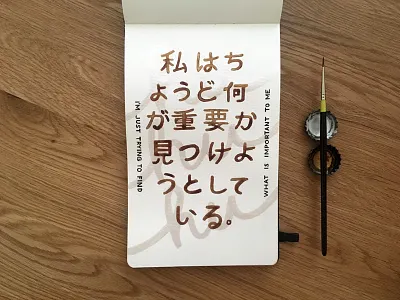 私はち
ょうど何
が重要か
見つけよ
うとして
いる。
I'M JUST TRYING TO FIND
WHAT IS IMPORTANT TO ME